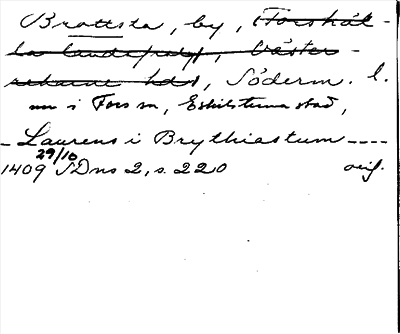 Brottsta, by, Torshäl-
la landsfrs., Väster-
rekarne hd, Söderm. l.
nu i Fors sn, Eskilstuna stad,
- Laurens i Brythiastum ----
29/10
1409 SDns 2, s. 220 orig.